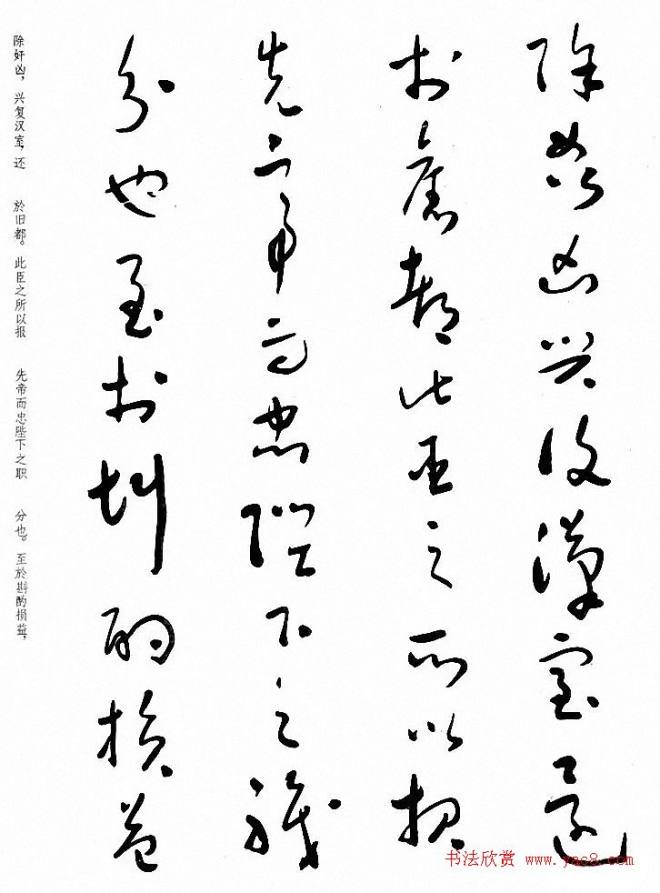 除姦凶興復漢室還
於舊都此臣之所以報
先帝而忠陛下之職
分也至於斟酌損益
除奸凶，兴复汉室，还 於旧都。此臣之所以报 先帝而忠陛下之职 分也。至於斟酌损益，
书法欣赏 www.yac8.com